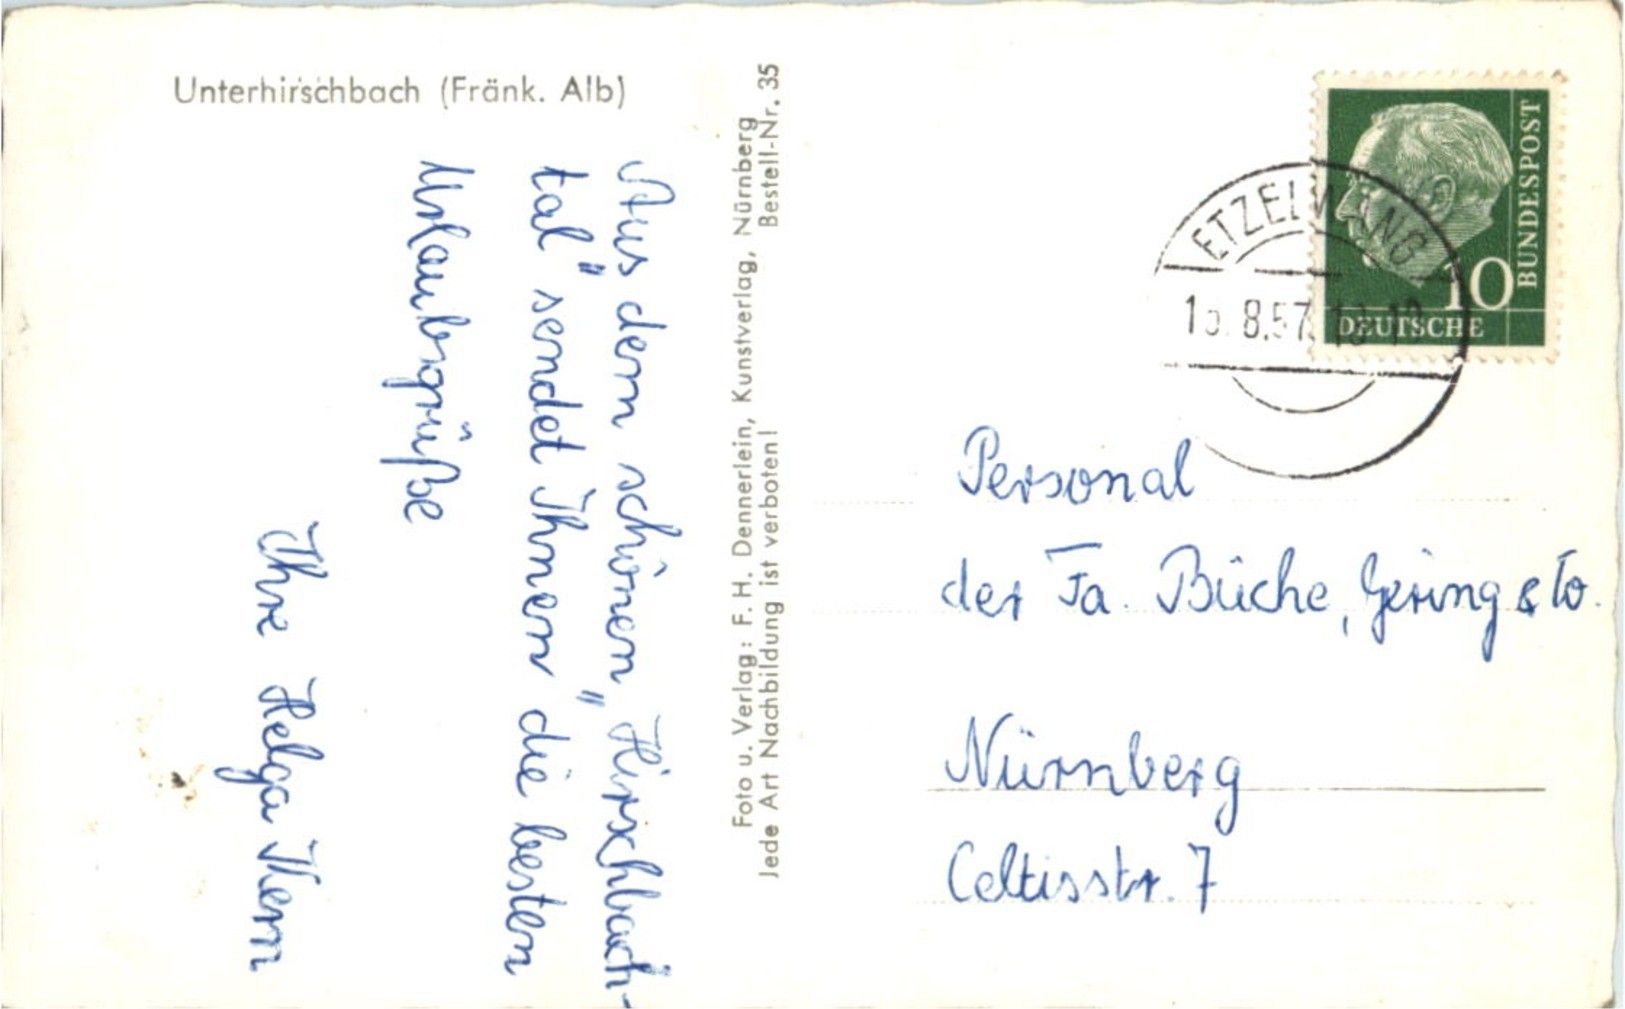 Unterhirschbach (Fränk. Alb)
Aus dem schönen „Hirschbach-
tal" sendet Ihnen die besten
Urlaubsgrüße
Ihre Helga Kern
Foto u. Verlag: F. H. Dennerlein, Kunstverlag, Nürnberg
Jede Art Nachbildung ist verboten! Bestell-Nr. 35
DEUTSCHE
BUNDESPOST
10
ETZELWANG
8.57
Personal
der Fa. Büche, Gering & Co.
Nürnberg
Celtisstr. 7